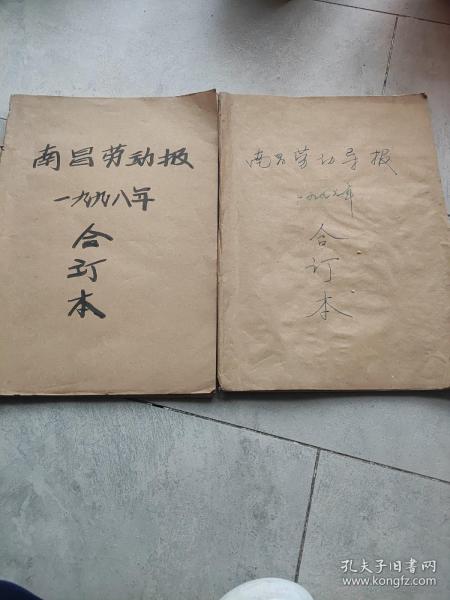 南昌劳动报
一九九八年
合
订
本
南昌劳动导报
一九九七年
合
订
本
孔夫子旧书网
www.kongfz.com